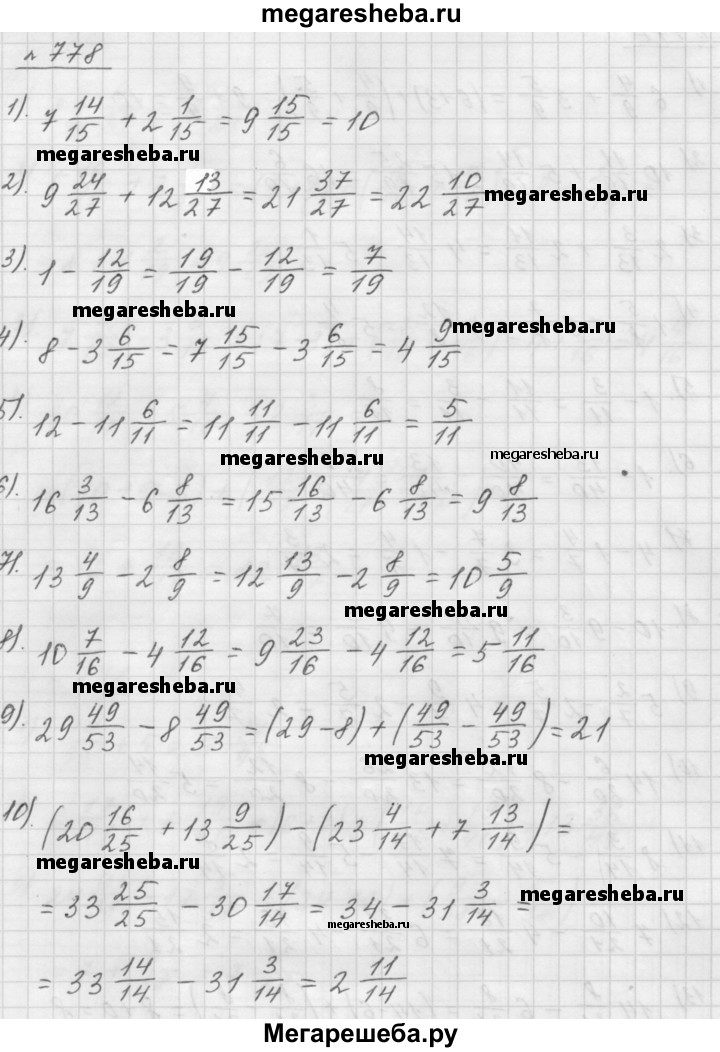 megaresheba.ru
№ 778
1). 7 14/15 + 2 1/15 = 9 15/15 = 10
megaresheba.ru
2). 9 24/27 + 12 13/27 = 21 37/27 = 22 10/27 megaresheba.ru
3). 1 - 12/19 = 19/19 - 12/19 = 7/19
megaresheba.ru
4). 8 - 3 6/15 = 7 15/15 - 3 6/15 = 4 9/15 megaresheba.ru
5). 12 - 11 6/11 = 11 11/11 - 11 6/11 = 5/11
megaresheba.ru megaresheba.ru
6). 16 3/13 - 6 8/13 = 15 16/13 - 6 8/13 = 9 8/13
7). 13 4/9 - 2 8/9 = 12 13/9 - 2 8/9 = 10 5/9
megaresheba.ru
8). 10 7/16 - 4 12/16 = 9 23/16 - 4 12/16 = 5 11/16
megaresheba.ru
9). 29 49/53 - 8 49/53 = (29 - 8) + (49/53 - 49/53) = 21
megaresheba.ru
10). (20 16/25 + 13 9/25) - (23 4/14 + 7 13/14) =
megaresheba.ru
= 33 25/25 - 30 17/14 = 34 - 31 3/14 = megaresheba.ru
megaresheba.ru
= 33 14/14 - 31 3/14 = 2 11/14
Мегарешеба.ру